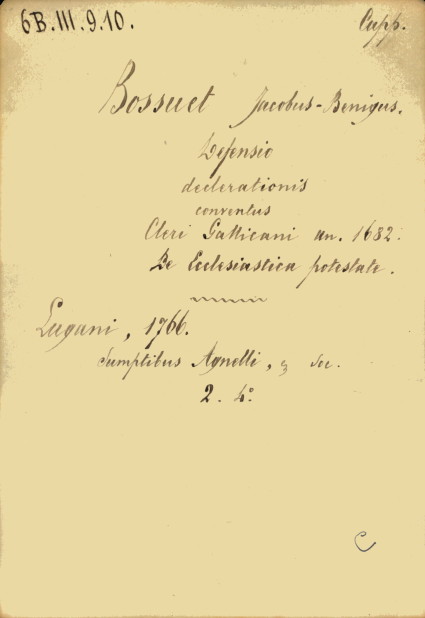 6B.III.9.10. Capp.
Bossuet Jacobus-Benigus.
Defensio
declerationis
conventus
Cleri Gallicani an. 1682.
De Ecclesiastica potestate.
Lugani, 1766.
Sumptibus Agnelli, & Soc.
2. 4°
C